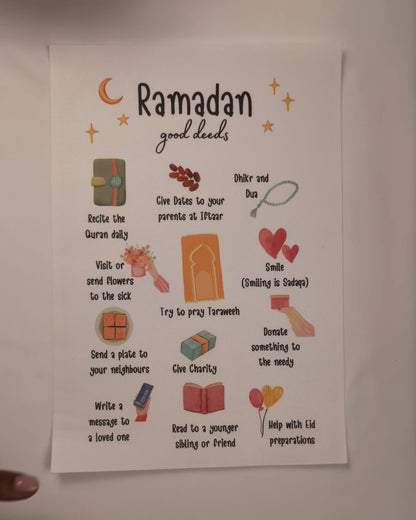 Ramadan
good deeds
Recite the
Quran daily
Give Dates to your
parents at Iftaar
Dhikr and
Dua
Visit or
send flowers
to the sick
Try to pray Taraweeh
Smile
(Smiling is Sadaqa)
Send a plate to
your neighbours
Give Charity
Donate
something to
the needy
Write a
message to
a loved one
Read to a younger
sibling or friend
Help with Eid
preparations